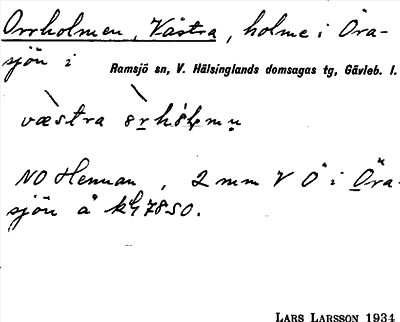 Orrholmen, Västra, holme i Öra-
sjön i Ramsjö sn, V. Hälsinglands domsagas tg, Gävleb. l.
NO Hennan, 2 mm V Ö i Öra-
sjön å kbl 7850.
LARS LARSSON 1934